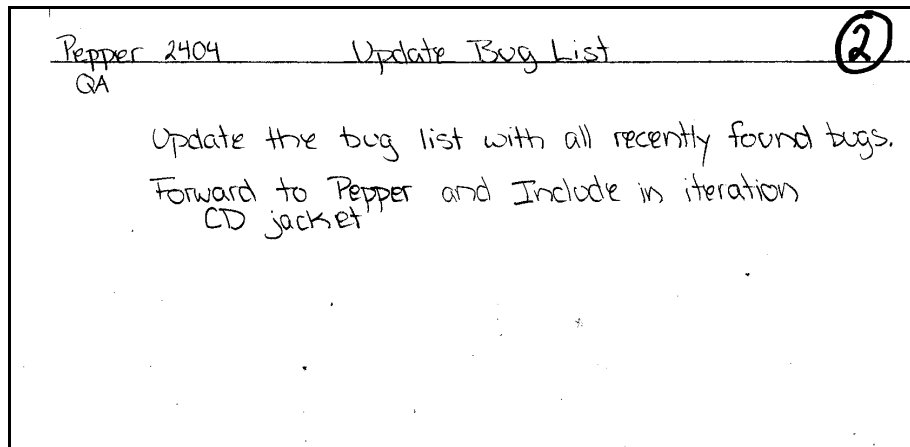 Pepper 2404 Update Bug List 2
QA
Update the bug list with all recently found bugs.
Forward to Pepper and Include in iteration
CD jacket